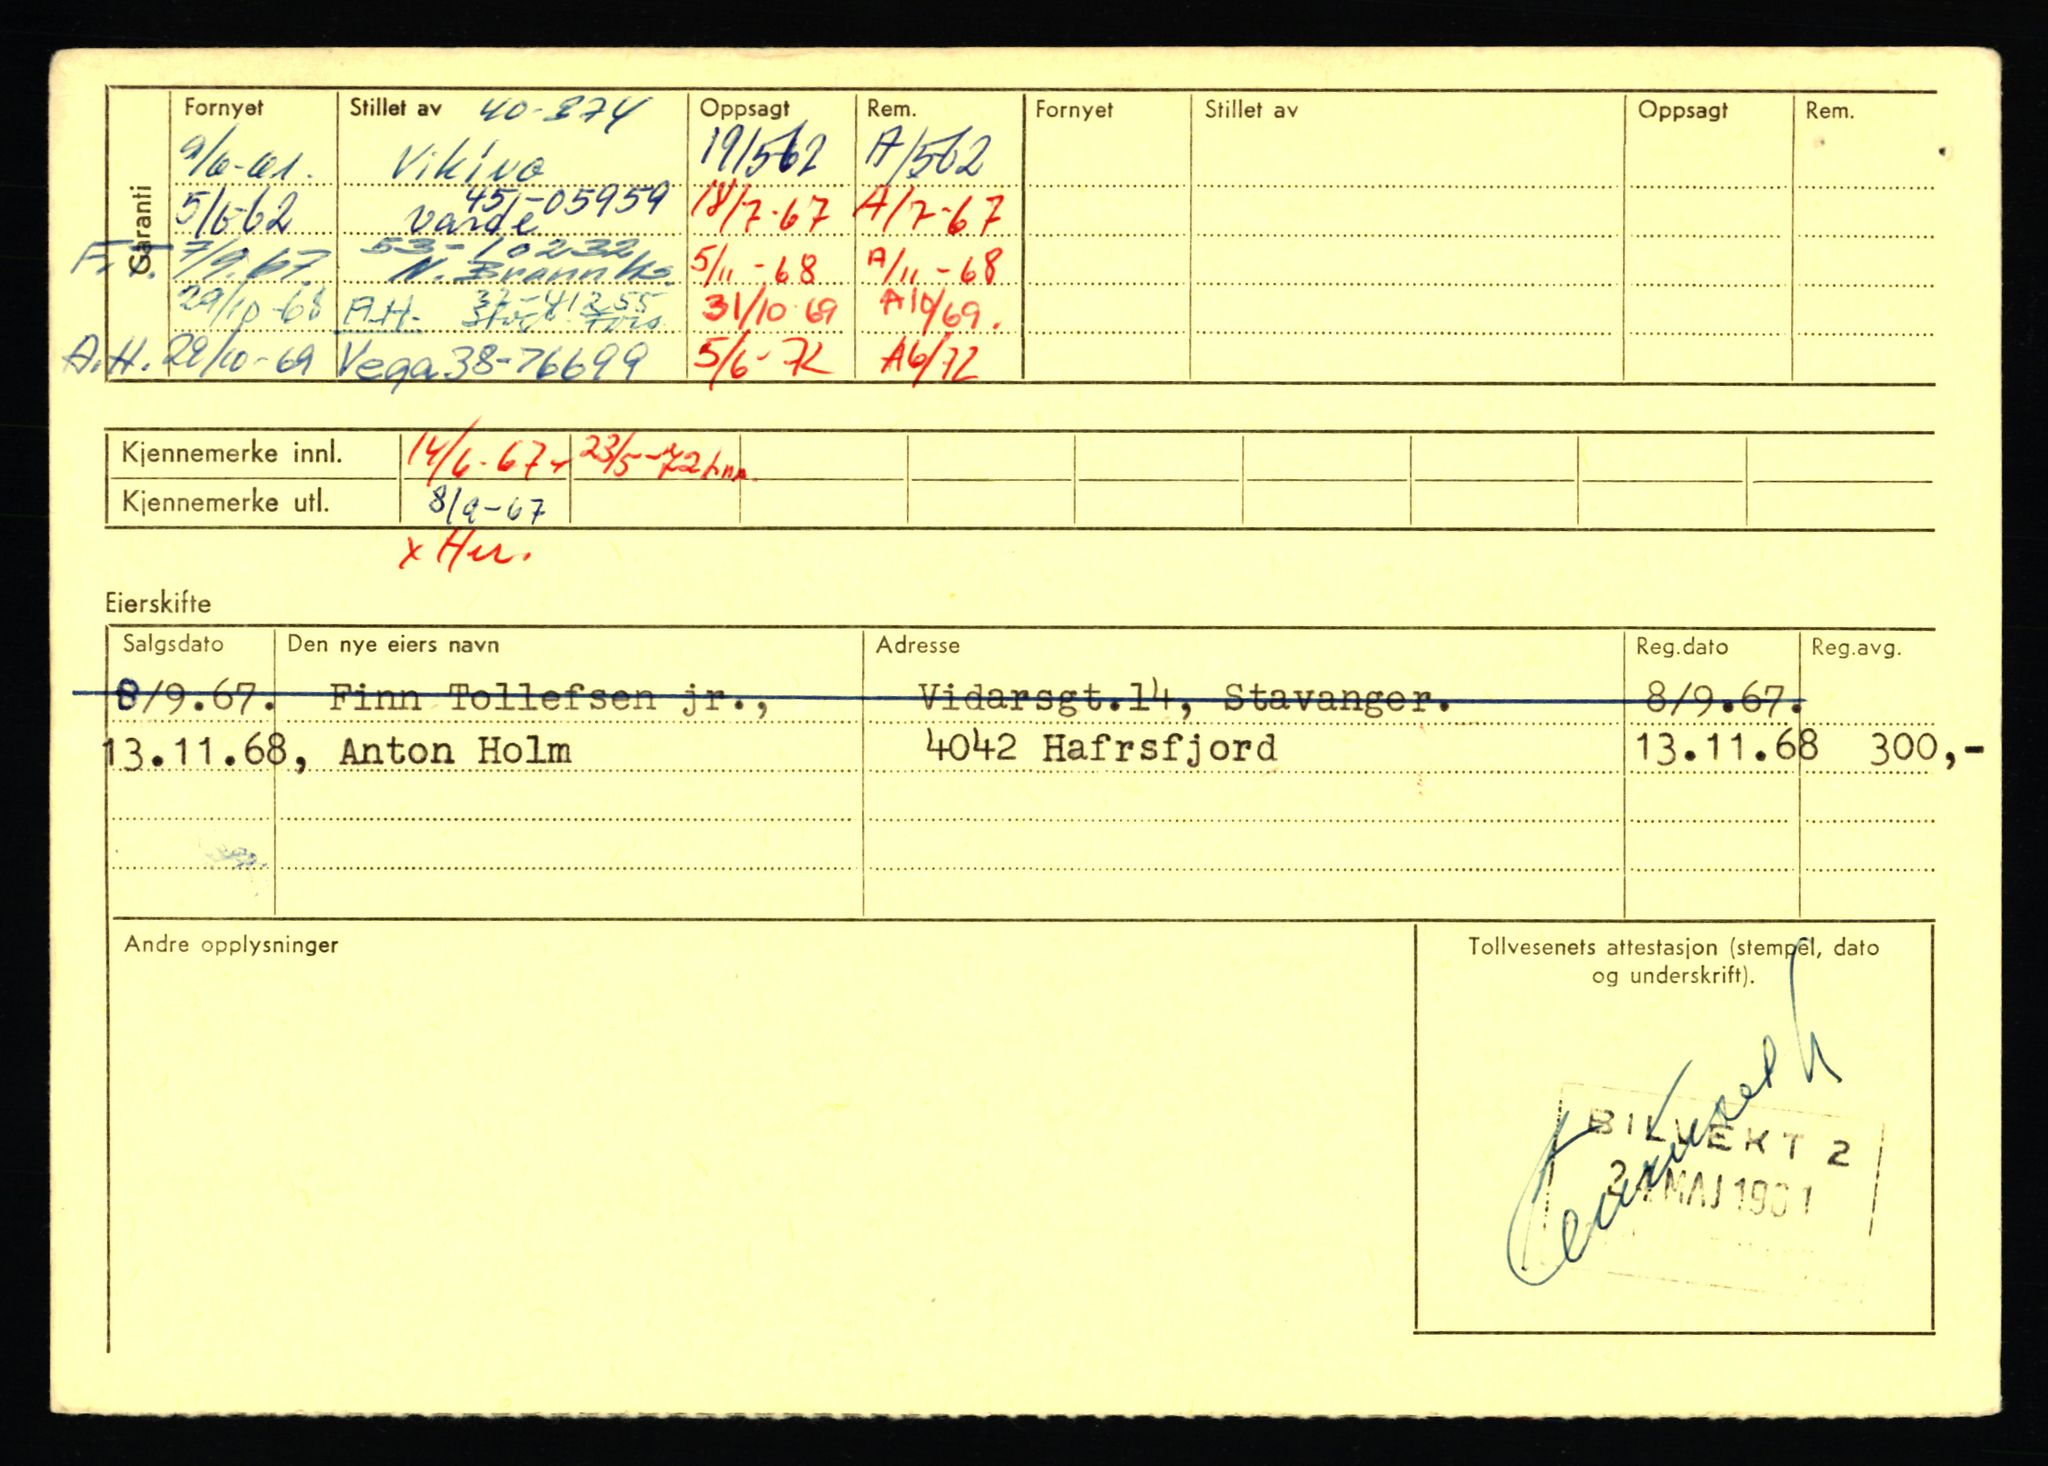 Garanti Fornyet Stillet av 40-874 Oppsagt Rem. Fornyet Stillet av Oppsagt Rem.
9/6-61. 19/562 A/562
5/6-62 Varde 451-05959 18/7-67 A/7-67
F.T. 7/9.67. 53-10232 N. Brannks. 5/11-68 A/11-68
29/10-68 A.H. 31/10 69 A10/69.
A.H. 29/10-69 Vega 38-76699 5/6-72 A6/72
Kjennemerke innl. 14/6-67 23/5-72
Kjennemerke utl. 8/9-67
x Her.
Eierskifte
Salgsdato Den nye eiers navn Adresse Reg.dato Reg.avg.
8/9.67. Finn Tollefsen jr., Vidarsgt.14, Stavanger. 8/9.67.
13.11.68, Anton Holm 4042 Hafrsfjord 13.11.68 300,-
Andre opplysninger
Tollvesenets attestasjon (stempel, dato
og underskrift).
MAJ 1961